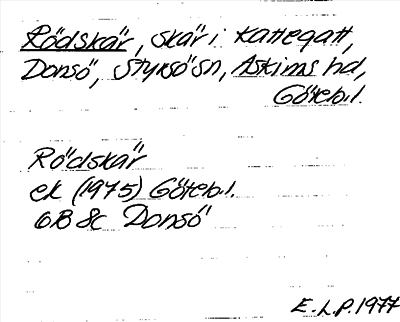 Rödskär, skär i Kattegatt,
Donsö, Styrsö sn, Askims hd,
Göteb.l.
Rödskär
ek (1975) Göteb.l.
6B 8c Donsö
E.L.P. 1977